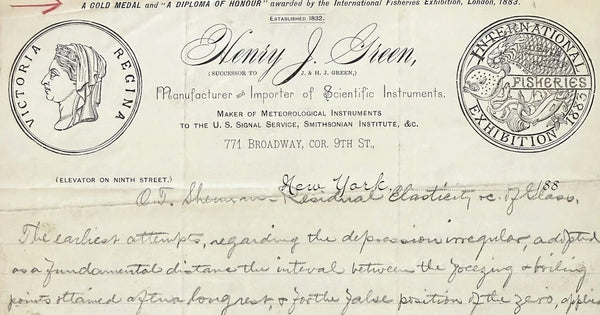 A GOLD MEDAL and "A DIPLOMA OF HONOUR" awarded by the International Fisheries Exhibition, London, 1883.
ESTABLISHED 1832.
Henry J. Green,
(SUCCESSOR TO J. & H. J. GREEN,)
Manufacturer and Importer of Scientific Instruments.
MAKER OF METEOROLOGICAL INSTRUMENTS
TO THE U. S. SIGNAL SERVICE, SMITHSONIAN INSTITUTE, &C.
771 BROADWAY, COR. 9TH ST.,
VICTORIA REGINA
INTERNATIONAL FISHERIES EXHIBITION 1883
(ELEVATOR ON NINTH STREET.)
New York, 188
O.T. Sherman - Residual Elasticity &c. of Glass.
The earliest attempts, regarding the depression irregular, adopted
as a fundamental distance the interval between the freezing & boiling
points obtained after a long rest, & for the false position of the zero, applied